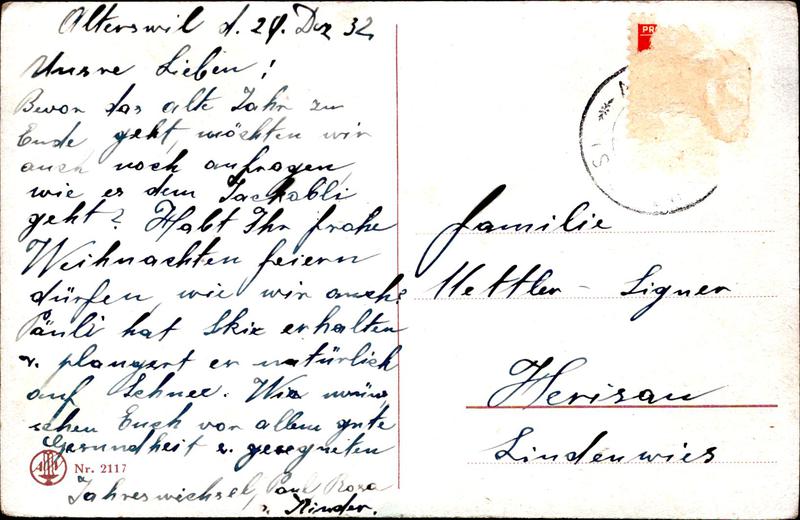 Alterswil d. 29. Dez 32
Unsre Lieben!
Bevor das alte Jahr zu
Ende geht, möchten wir
auch noch anfragen,
wie es dem Jackobli
geht? Habt Ihr frohe
Weihnachten feiern
dürfen, wie wir auch?
Päuli hat Skie erhalten
u. plangert er natürlich
auf Schnee. Wir wün-
schen Euch vor allem gute
Gesundheit u. gesegneten
Jahreswechsel, Paul Rosa
u. Kinder.
Nr. 2117
PRO
Familie
Mettler-Signer
Herisau
Lindenwies